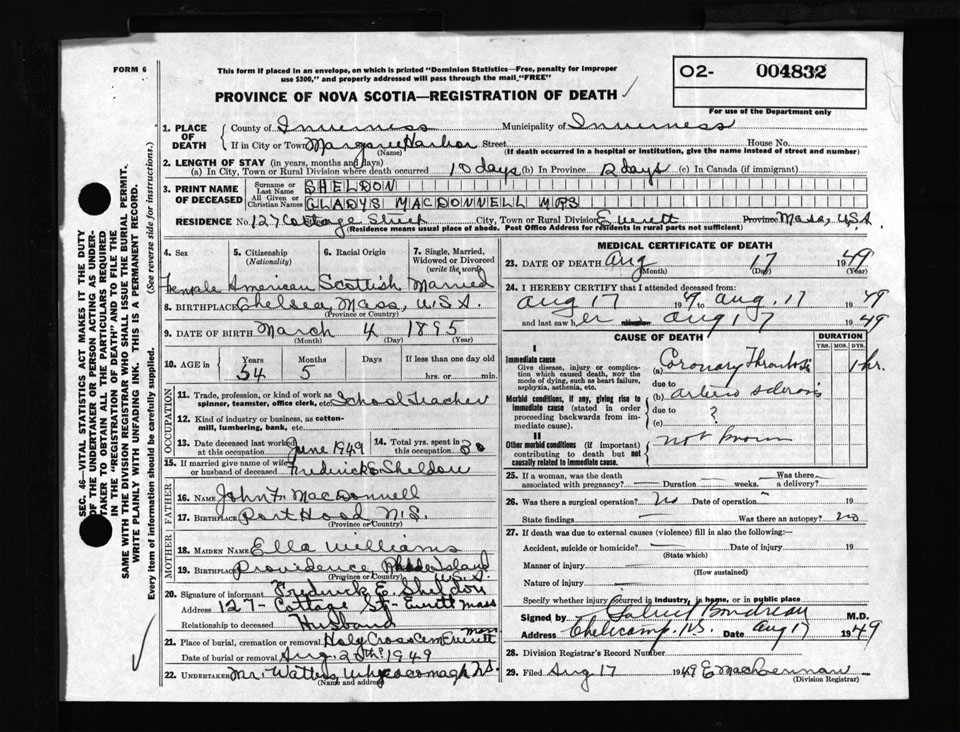 FORM 6
This form if placed in an envelope, on which is printed "Dominion Statistics—Free, penalty for improper
use $300," and properly addressed will pass through the mail "FREE"
O2- 004832
PROVINCE OF NOVA SCOTIA—REGISTRATION OF DEATH ✓
For use of the Department only
SEC. 46—VITAL STATISTICS ACT MAKES IT THE DUTY
OF THE UNDERTAKER OR PERSON ACTING AS UNDER-
TAKER TO OBTAIN ALL THE PARTICULARS REQUIRED
IN THE "REGISTRATION OF DEATH" AND TO FILE THE
SAME WITH THE DIVISION REGISTRAR WHO SHALL ISSUE THE BURIAL PERMIT.
WRITE PLAINLY WITH UNFADING INK. THIS IS A PERMANENT RECORD.
Every item of information should be carefully supplied. (See reverse side for instructions.)
1. PLACE OF DEATH
County of Inverness Municipality of Inverness
If in City or Town Margaree Harbor Street House No.
(Name) (If death occurred in a hospital or institution, give the name instead of street and number)
2. LENGTH OF STAY (in years, months and days)
(a) In City, Town or Rural Division where death occurred 10 days (b) In Province 12 days (c) In Canada (if immigrant)
3. PRINT NAME OF DECEASED
Surname or Last Name SHELDON
All Given or Christian Names GLADYS MACDONNELL MRS
RESIDENCE No. 127 Cottage Street City, Town or Rural Division Everett Province Mass, USA
(Residence means usual place of abode. Post Office Address for residents in rural parts not sufficient)
4. Sex 5. Citizenship (Nationality) 6. Racial Origin 7. Single, Married, Widowed or Divorced (write the word)
Female American Scottish Married
8. BIRTHPLACE Chelsea, Mass, U.S.A.
(Province or Country)
9. DATE OF BIRTH March 4 1895
(Month) (Day) (Year)
10. AGE in Years Months Days If less than one day old
54 5 hrs. or min.
OCCUPATION
11. Trade, profession, or kind of work as spinner, teamster, office clerk, etc. School Teacher
12. Kind of industry or business, as cotton-mill, lumbering, bank, etc.
13. Date deceased last worked at this occupation June 1949 14. Total yrs. spent in this occupation 30
15. If married give name of wife or husband of deceased Fredrick E Sheldon
FATHER
16. NAME John F. MacDonnell
17. BIRTHPLACE Port Hood N.S.
(Province or Country)
MOTHER
18. MAIDEN NAME Ella Williams
19. BIRTHPLACE Providence, Rhode Island U.S.A.
(Province or Country)
20. Signature of informant Fredrick E. Sheldon
Address 127- Cottage St- Everett Mass
Relationship to deceased Husband
21. Place of burial, cremation or removal Holy Cross Cem Everett Mass
Date of burial or removal Aug. 20th 1949
22. UNDERTAKER Mr. Watters, Whycocomagh N.S.
(Name and address)
MEDICAL CERTIFICATE OF DEATH
23. DATE OF DEATH Aug 17 1949
(Month) (Day) (Year)
24. I HEREBY CERTIFY that I attended deceased from:
Aug 17 1949 to Aug. 17 1949
and last saw her Aug 17 1949
CAUSE OF DEATH DURATION
YRS. MOS. DYS.
I
Immediate cause
Give disease, injury or complication which caused death, NOT the mode of dying, such as heart failure, asphyxia, asthenia, etc.
(a) Coronary Thrombosis 1 hr.
due to
Morbid conditions, if any, giving rise to immediate cause (stated in order proceeding backwards from immediate cause).
(b) arterio sclerosis
due to ?
(c)
II
Other morbid conditions (if important) contributing to death but not causally related to immediate cause.
not known
25. If a woman, was the death associated with pregnancy? Duration weeks. Was there a delivery?
26. Was there a surgical operation? no Date of operation 19
State findings Was there an autopsy? no
27. If death was due to external causes (violence) fill in also the following:—
Accident, suicide or homicide? Date of injury 19
(State which)
Manner of injury
(How sustained)
Nature of injury
Specify whether injury occurred in industry, in home, or in public place
Signed by Gabriel Boudreau M.D.
Address Cheticamp. N.S. Date Aug 17 1949
28. Division Registrar's Record Number
29. Filed Aug 17 1949 E MacLennan
(Division Registrar)